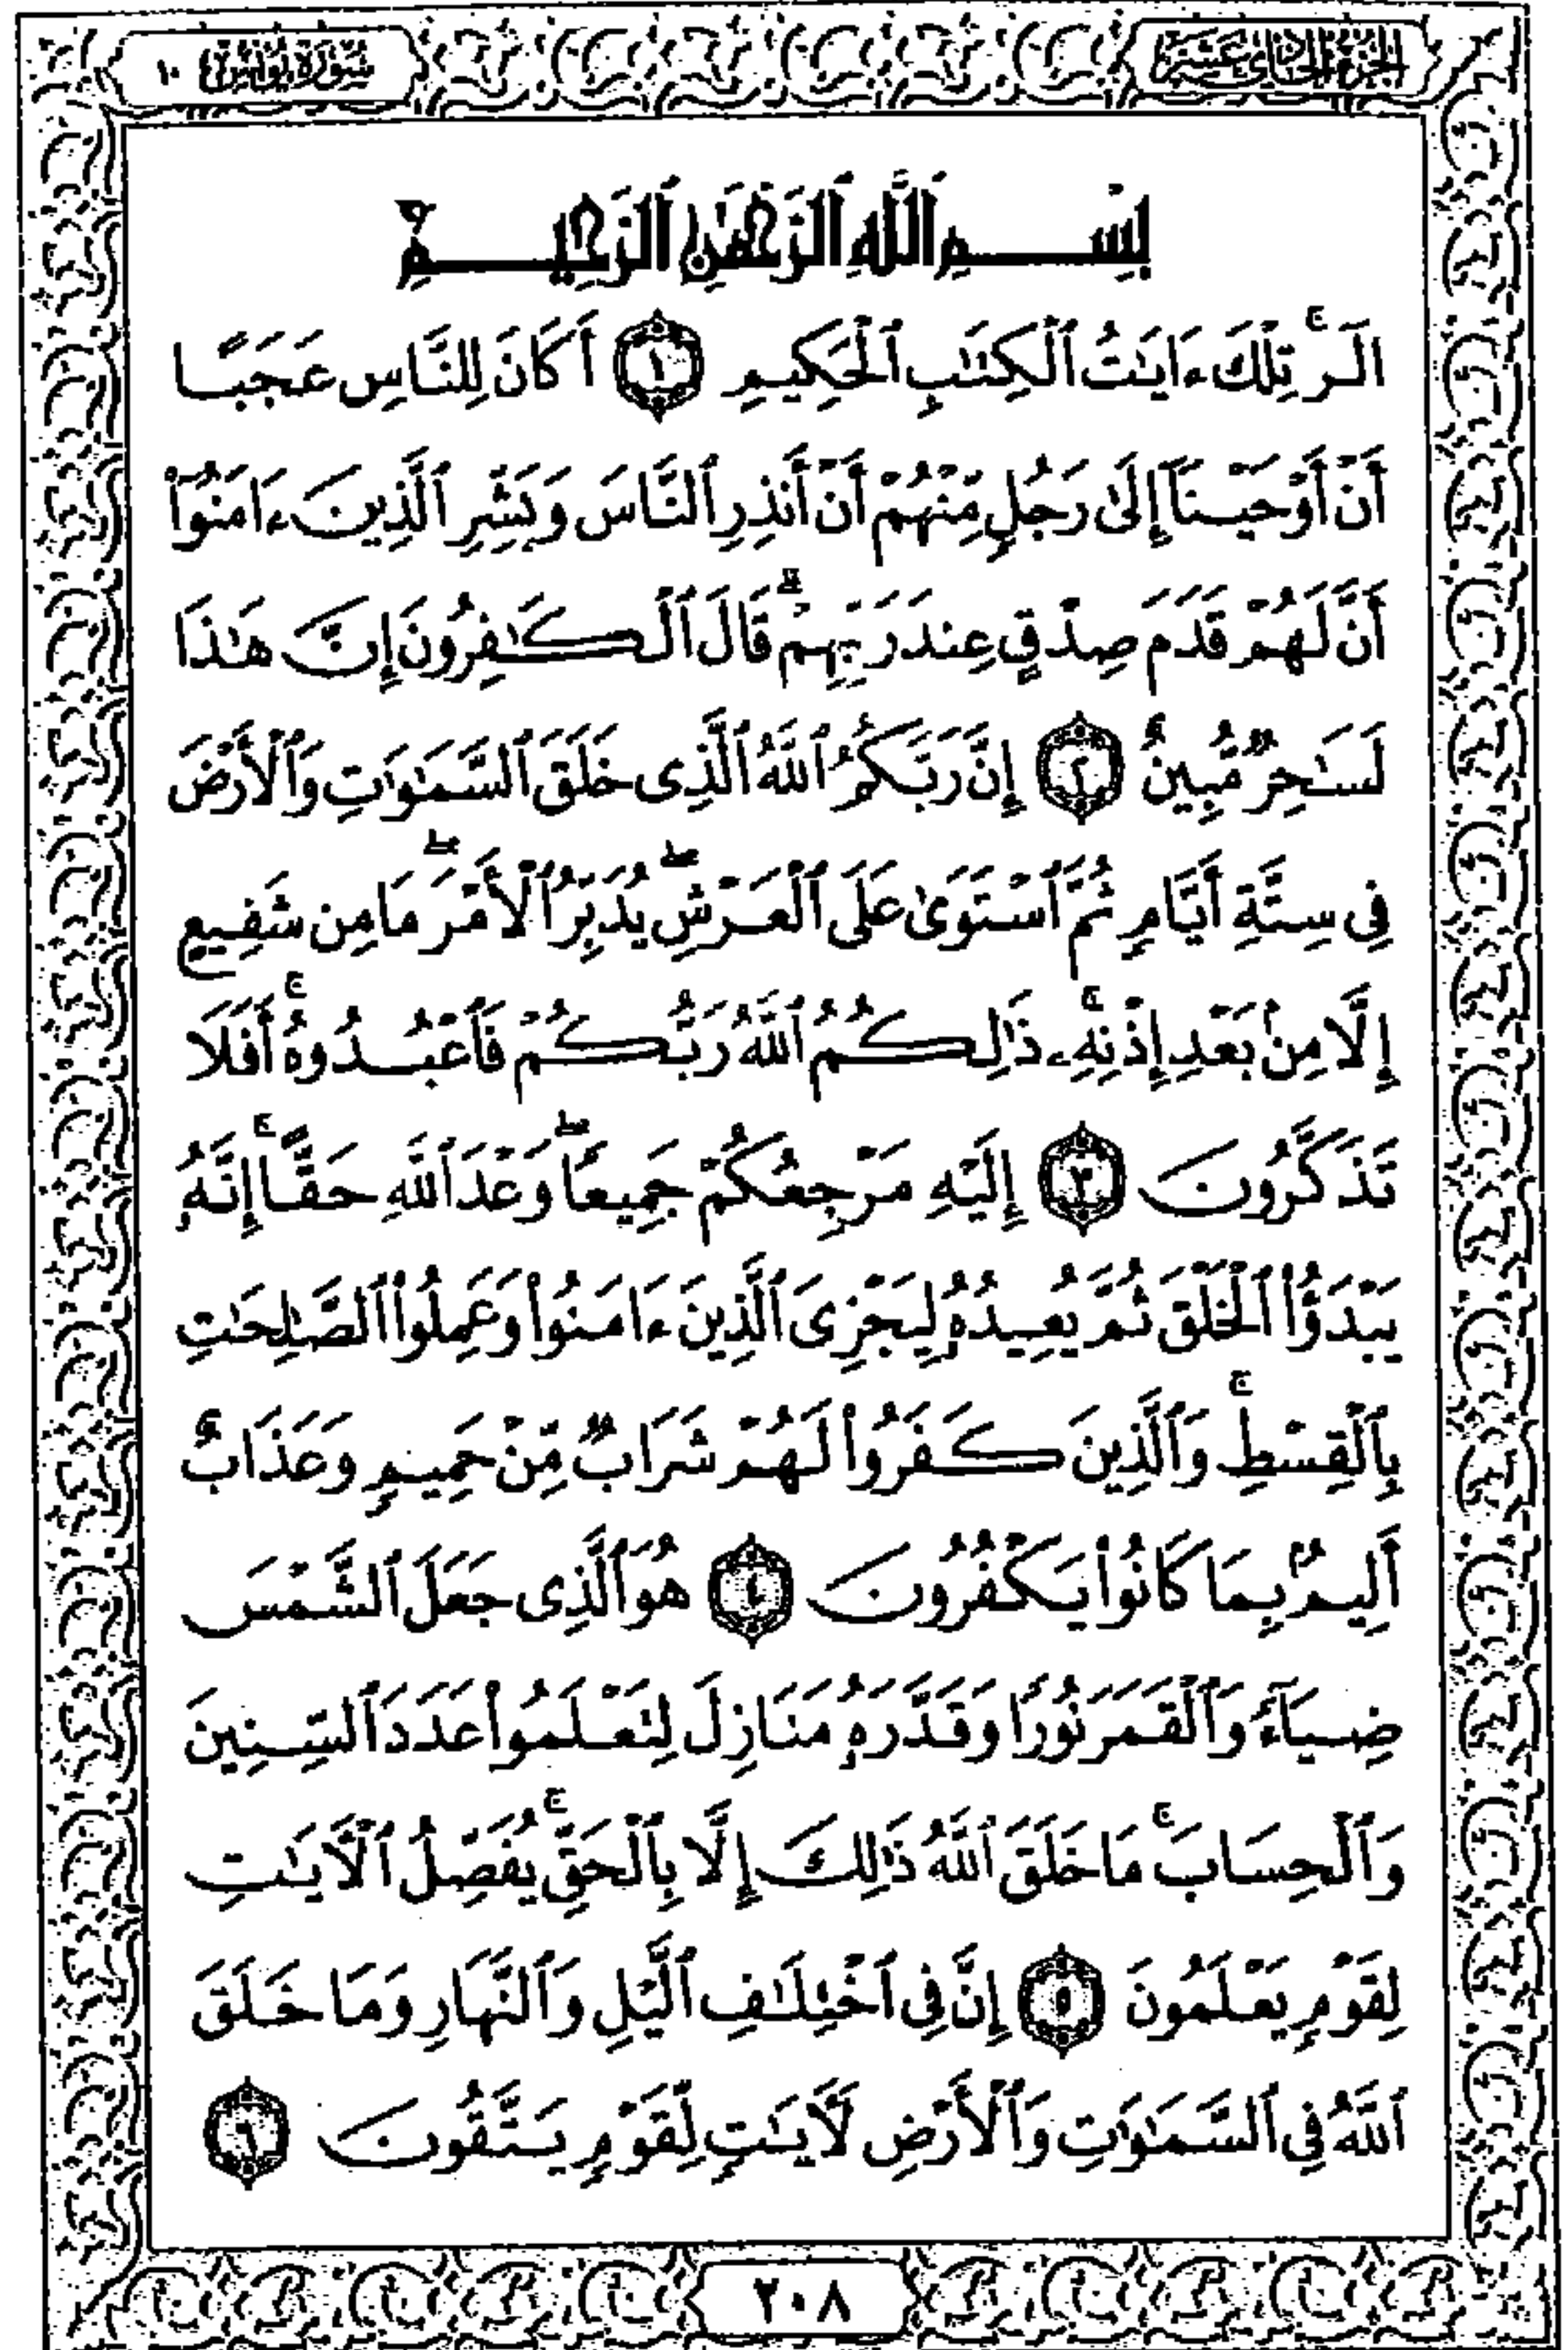 الجزء الحادي عشر
سورة يونس ١٠
بِسْمِ ٱللَّهِ ٱلرَّحْمَٰنِ ٱلرَّحِيمِ
الٓرۚ تِلْكَ ءَايَٰتُ ٱلْكِتَٰبِ ٱلْحَكِيمِ ١ أَكَانَ لِلنَّاسِ عَجَبًا
أَنْ أَوْحَيْنَآ إِلَىٰ رَجُلٍ مِّنْهُمْ أَنْ أَنذِرِ ٱلنَّاسَ وَبَشِّرِ ٱلَّذِينَ ءَامَنُوٓا۟
أَنَّ لَهُمْ قَدَمَ صِدْقٍ عِندَ رَبِّهِمْۗ قَالَ ٱلْكَٰفِرُونَ إِنَّ هَٰذَا
لَسَٰحِرٌ مُّبِينٌ ٢ إِنَّ رَبَّكُمُ ٱللَّهُ ٱلَّذِى خَلَقَ ٱلسَّمَٰوَٰتِ وَٱلْأَرْضَ
فِى سِتَّةِ أَيَّامٍ ثُمَّ ٱسْتَوَىٰ عَلَى ٱلْعَرْشِۖ يُدَبِّرُ ٱلْأَمْرَۖ مَا مِن شَفِيعٍ
إِلَّا مِنۢ بَعْدِ إِذْنِهِۦۚ ذَٰلِكُمُ ٱللَّهُ رَبُّكُمْ فَٱعْبُدُوهُۚ أَفَلَا
تَذَكَّرُونَ ٣ إِلَيْهِ مَرْجِعُكُمْ جَمِيعًاۖ وَعْدَ ٱللَّهِ حَقًّاۚ إِنَّهُۥ
يَبْدَؤُا۟ ٱلْخَلْقَ ثُمَّ يُعِيدُهُۥ لِيَجْزِىَ ٱلَّذِينَ ءَامَنُوا۟ وَعَمِلُوا۟ ٱلصَّٰلِحَٰتِ
بِٱلْقِسْطِۚ وَٱلَّذِينَ كَفَرُوا۟ لَهُمْ شَرَابٌ مِّنْ حَمِيمٍ وَعَذَابٌ
أَلِيمٌۢ بِمَا كَانُوا۟ يَكْفُرُونَ ٤ هُوَ ٱلَّذِى جَعَلَ ٱلشَّمْسَ
ضِيَآءً وَٱلْقَمَرَ نُورًا وَقَدَّرَهُۥ مَنَازِلَ لِتَعْلَمُوا۟ عَدَدَ ٱلسِّنِينَ
وَٱلْحِسَابَۚ مَا خَلَقَ ٱللَّهُ ذَٰلِكَ إِلَّا بِٱلْحَقِّۚ يُفَصِّلُ ٱلْءَايَٰتِ
لِقَوْمٍ يَعْلَمُونَ ٥ إِنَّ فِى ٱخْتِلَٰفِ ٱلَّيْلِ وَٱلنَّهَارِ وَمَا خَلَقَ
ٱللَّهُ فِى ٱلسَّمَٰوَٰتِ وَٱلْأَرْضِ لَءَايَٰتٍ لِّقَوْمٍ يَتَّقُونَ ٦
٢٠٨